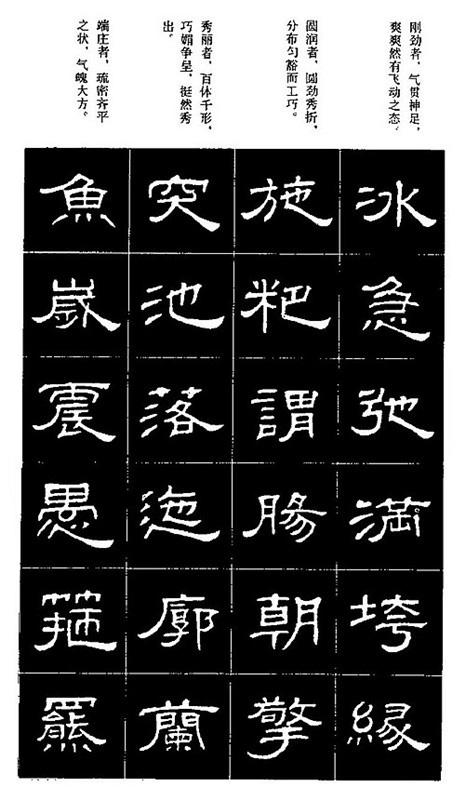 刚劲者，气贯神足，
爽爽然有飞动之态。
圆润者，圆劲秀折，
分布匀豁而工巧。
秀丽者，百体千形，
巧媚争呈，挺然秀
出。
端庄者，疏密齐平
之状，气魄大方。
冰急弛滿垮緣
施粑謂腸朝擎
突池落迤廓蘭
魚歲震愚箍羆